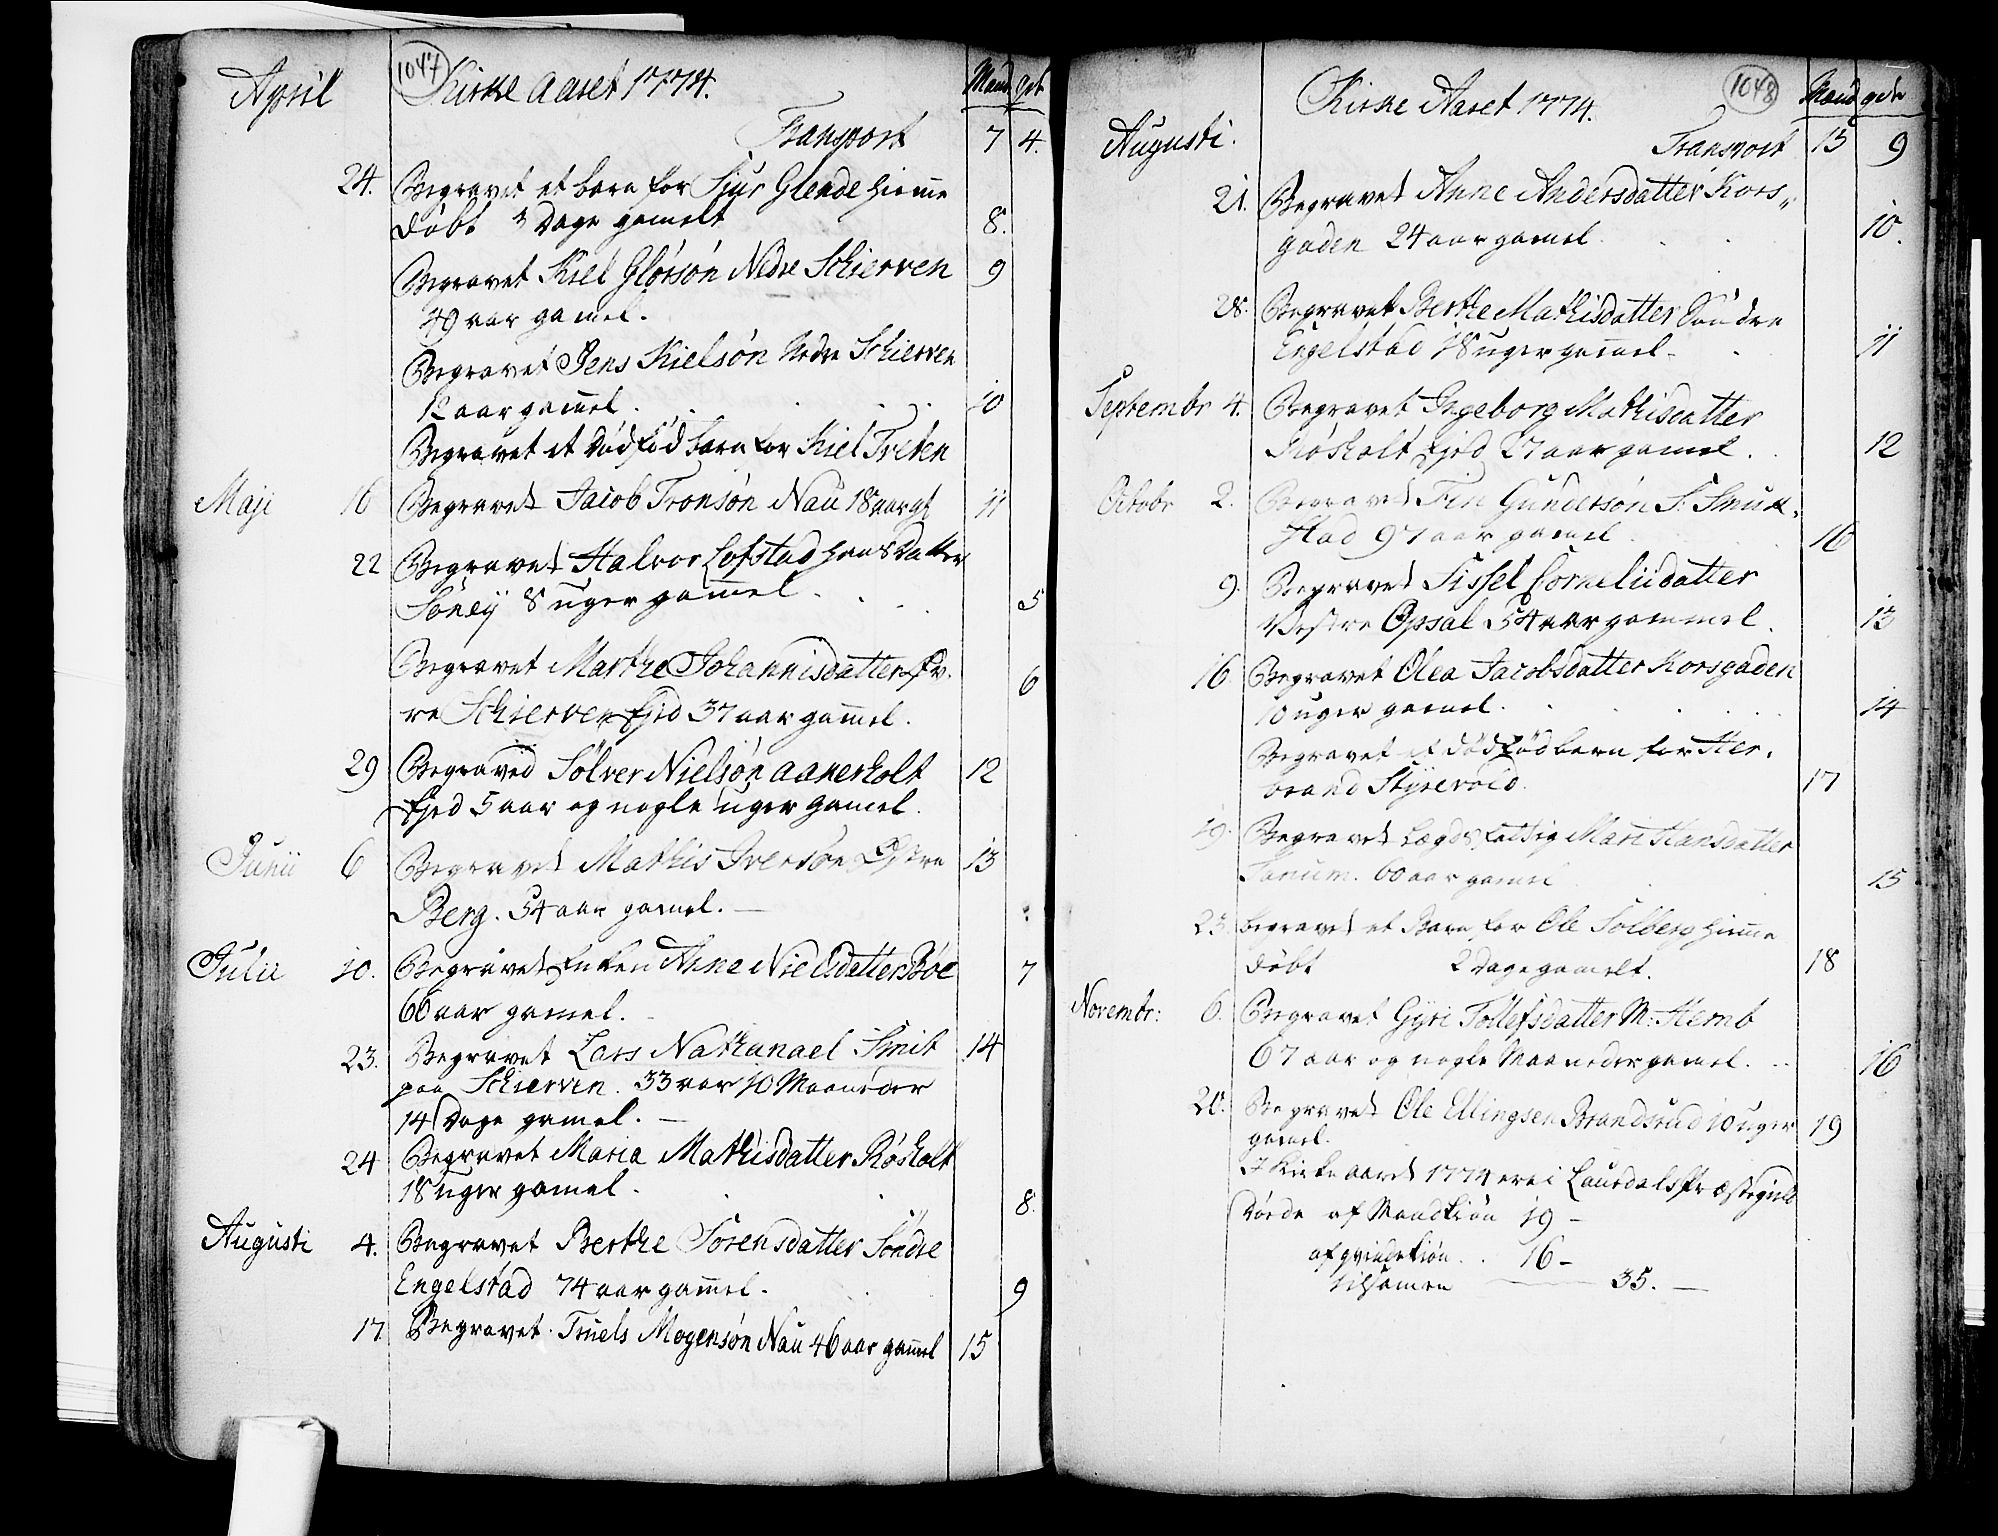 1047
April
Kirke Aaret 1774.
Mand qvk
Transport 7 4.
24. Begravet et barn for Siur Glende hiemme
døbt 3 Dage gamelt 8.
Begravet Kiel Glørsøn Nedre Schierven 9
49 aar gamel.
Begravet Jens Kielsøn Nedre Schierven
12 aar gam̄el. 10
Begravet et dødfød barn for Kiel Tveten
Maji 16 Begravet Jacob Tronsøn Nau 18 aar gl 11
22 Begravet Halvor Lofstad hans Datter
Søneÿ 8 uger gam̄el. 5
Begravet Marthe Johannisdatter Øv-
re Schierven Ejed 37 aar gam̄el. 6
29 Begraved Sølver Nielsøn Aanerholt 12
Ejed 5 aar og nogle uger gamel.
Junii 6 Begravet Mathis Iversøn Østre 13
Berg. 54 aar gamel. —
Julii 10. Begravet Enken Anne Nielsdatter Bøe 7
66 aar gamel.
23. Begravet Lars Nathanael Smit 14
paa Schierven. 33 aar 10 Maaneder
14 Dage gamel. —
24 Begravet Maria Mathisdatter Røsholt
18 uger gamel. 8.
Augusti 4. Begravet Berthe Sørensdatter Søndre
Engelstad 74 aar gam̄el. 9
17 Begravet Truels Mogensøn Nau 46 aar gam̄el 15
1048
Kirke Aaret 1774.
Mand qvk
Augusti. Transport 15 9
21. Begravet Anne Andersdatter Kors„
gaden 24 aar gamel. 10.
28. Begravet Berthe Mathisdatter Søndre
Engelstad 18 uger gam̄el. 11
Septembr 4. Begravet Ingeborg Mathisdatter
Røsholt Ejed 27 aar gamel. 12
Octobr 2. Begravet Fin Gundersøn S. Smuk-
stad 97 aar gamel 16
9. Begravet Sissel Corneliidatter
Vestre Opsal 54 aar gammel. 13
16 Begravet Olea Jacobsdatter Korsgaden
10 uger gamel. 14
Begravet et dødfød barn for Her-
brand Styrevold. 17
19. Begravet Lægds fattig Mari Hansdatter
Sanum. 60 aar gamel 15
23. begravet et Barn for Ole Solberg hiem̄e
døbt 2 Dage gamelt. 18
Novembr: 6. Begravet Gyri Tollefsdatter M: Hemb
67 aar og nogle Maaneder gamel. 16
20. Begravet Ole Ellingsen Brandsrud 10 uger 19
gamel.
I Kirke aaret 1774 ere i Laurdals Præstegield
Døede af Mandkiøn 19 —
af qvindekiøn . . 16 —
tilsamen — 35. —